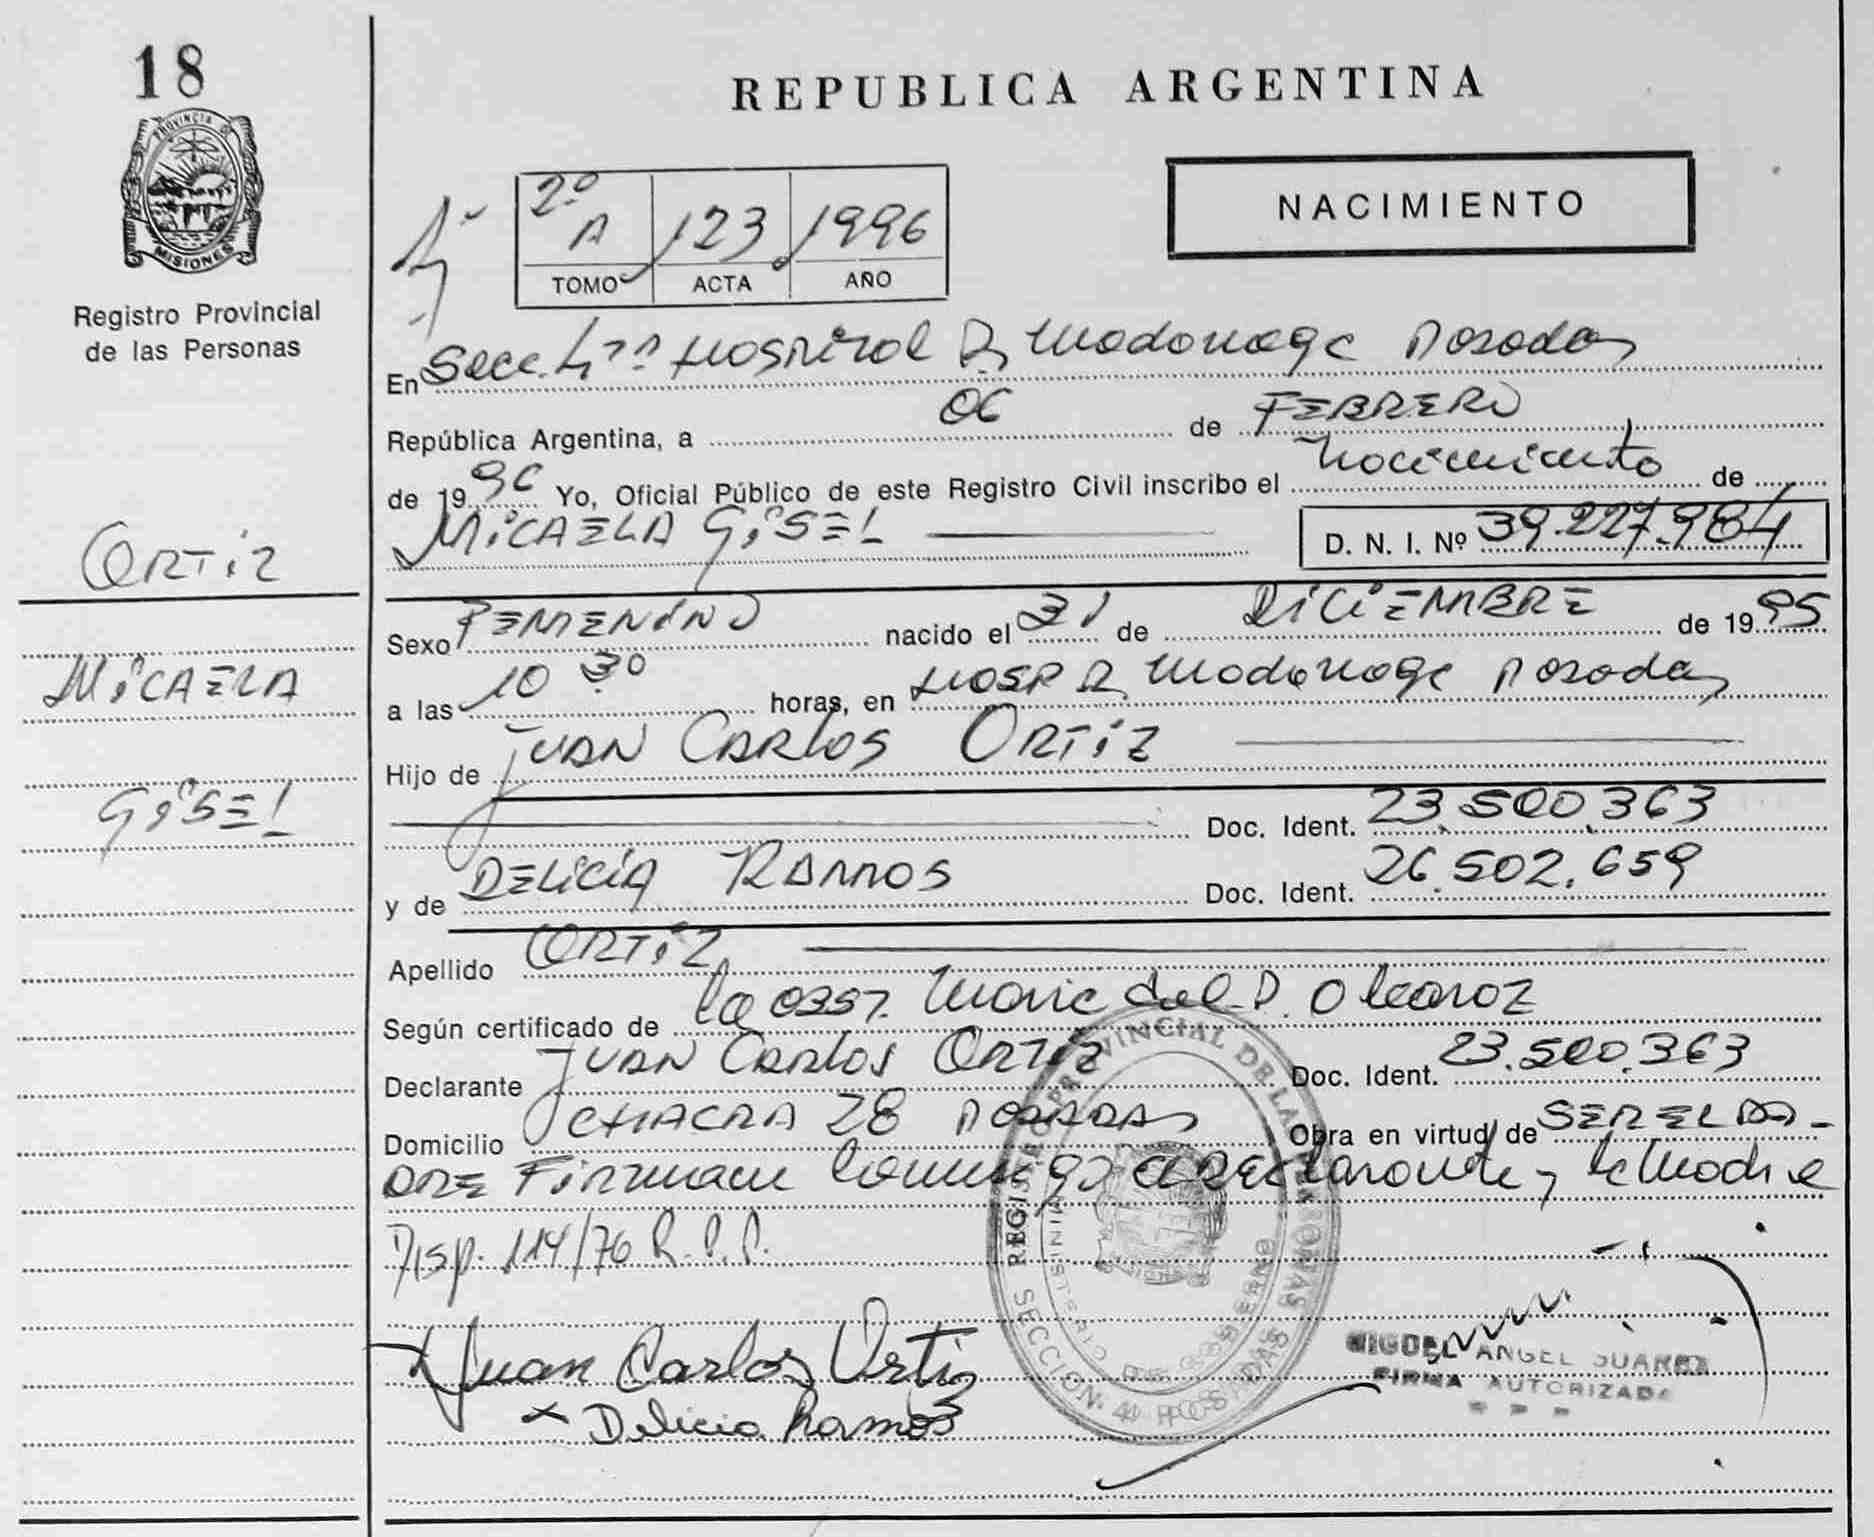 18
PROVINCIA DE
MISIONES
Registro Provincial
de las Personas
REPUBLICA ARGENTINA
NACIMIENTO
2º A 123 1996
TOMO ACTA AÑO
En Secc. 4ta Hospital R. Madariaga Posadas
República Argentina, a 06 de FEBRERO
de 1996 Yo, Oficial Público de este Registro Civil inscribo el Nacimiento de
MICAELA GISEL D. N. I. Nº 39.227.984
ORTIZ
MICAELA
GISEL
Sexo FEMENINO nacido el 31 de DICIEMBRE de 1995
a las 10 30 horas, en HOSP R. Madariaga Posadas
Hijo de JUAN CARLOS ORTIZ
Doc. Ident. 23.500.363
y de DELICIA RAMOS Doc. Ident. 26.502.659
Apellido ORTIZ
Según certificado de la obst. Maria del P. Alcaraz
Declarante JUAN CARLOS ORTIZ Doc. Ident. 23.500.363
Domicilio CHACRA 28 POSADAS Obra en virtud de SER EL PA-
DRE Firman conmigo el declarante y la Madre
Disp. 114/76 R.P.P.
Juan Carlos Ortiz
x Delicia Ramos
REGISTRO PROVINCIAL DE LAS PERSONAS
MINISTERIO DE GOBIERNO
SECCION 4 POSADAS
MIGUEL ANGEL SUAREZ
FIRMA AUTORIZADA